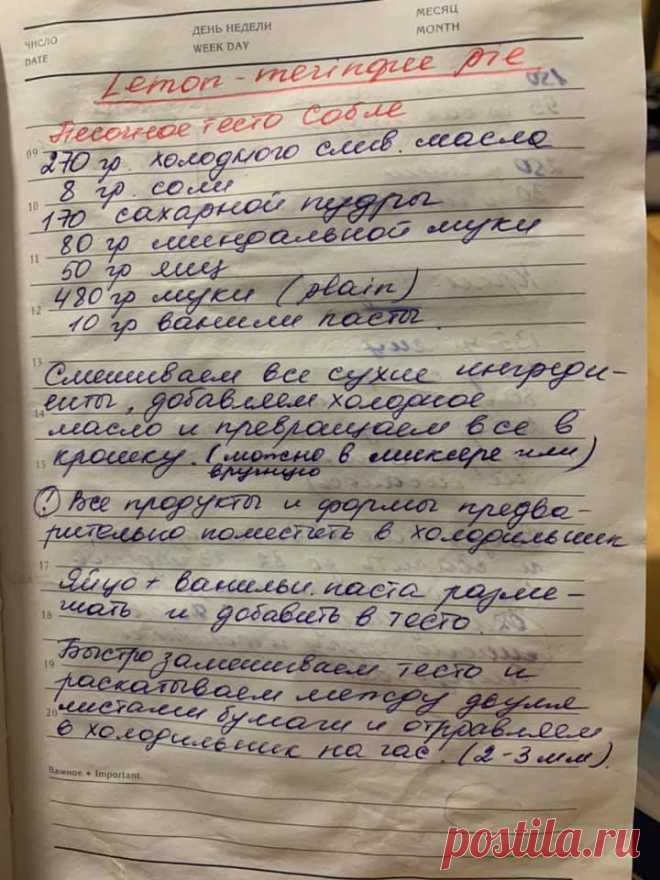 ЧИСЛО
DATE
ДЕНЬ НЕДЕЛИ
WEEK DAY
МЕСЯЦ
MONTH
Lemon-meringue pie
Песочное тесто Сабле
09
270 гр. холодного слив. масла
8 гр. соли
10
170 сахарной пудры
80 гр миндальной муки
11
50 гр яиц
480 гр муки (plain)
12
10 гр ванили пасты
13
Смешиваем все сухие ингреди-
енты, добавляем холодное
14
масло и превращаем все в
крошку. (можно в миксере или)
15
вручную
! Все продукты и формы предва-
рительно поместить в холодильник
17
Яйцо + ванильн. паста разме-
шать и добавить в тесто.
18
Быстро замешиваем тесто и
19
раскатываем между двумя
листами бумаги и отправляем
20
в холодильник на час. (2-3 мм).
Важное • Important
postila.ru